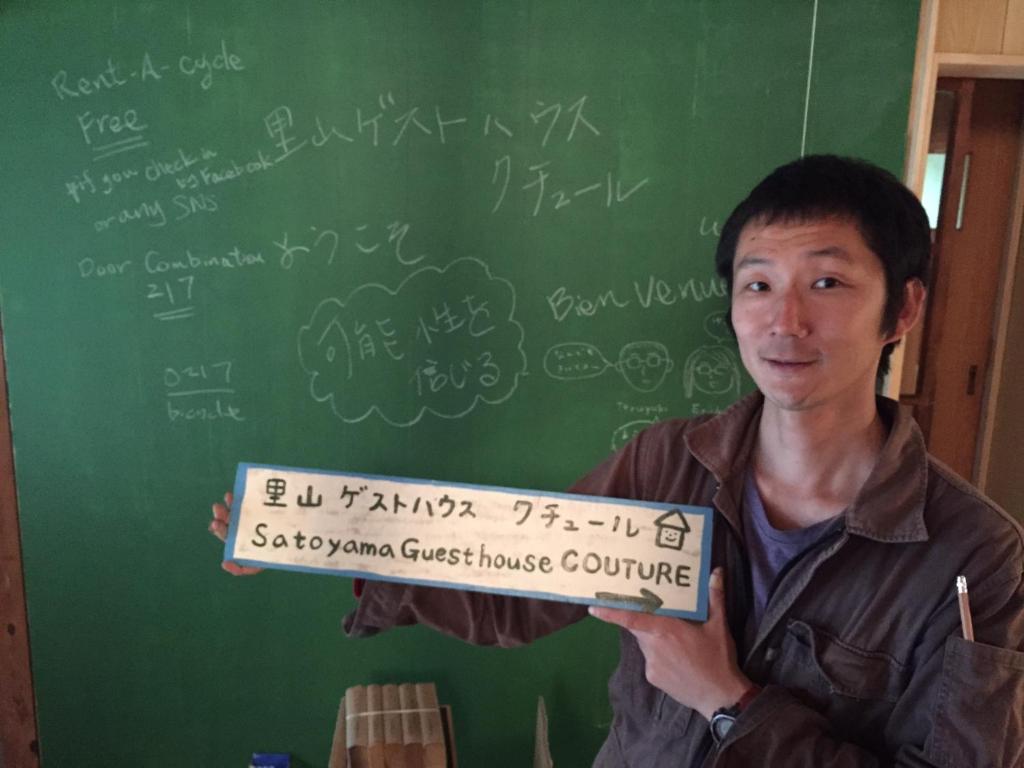 Rent-A-cycle
Free
if you check in
by Facebook
or any SNS
Door Combination
217
0217
bicycle
里山ゲストハウス
クチュール
ようこそ
可能性を
信じる
Bienvenue
Teruyuki
里山 ゲストハウス クチュール
Satoyama Guesthouse COUTURE
→